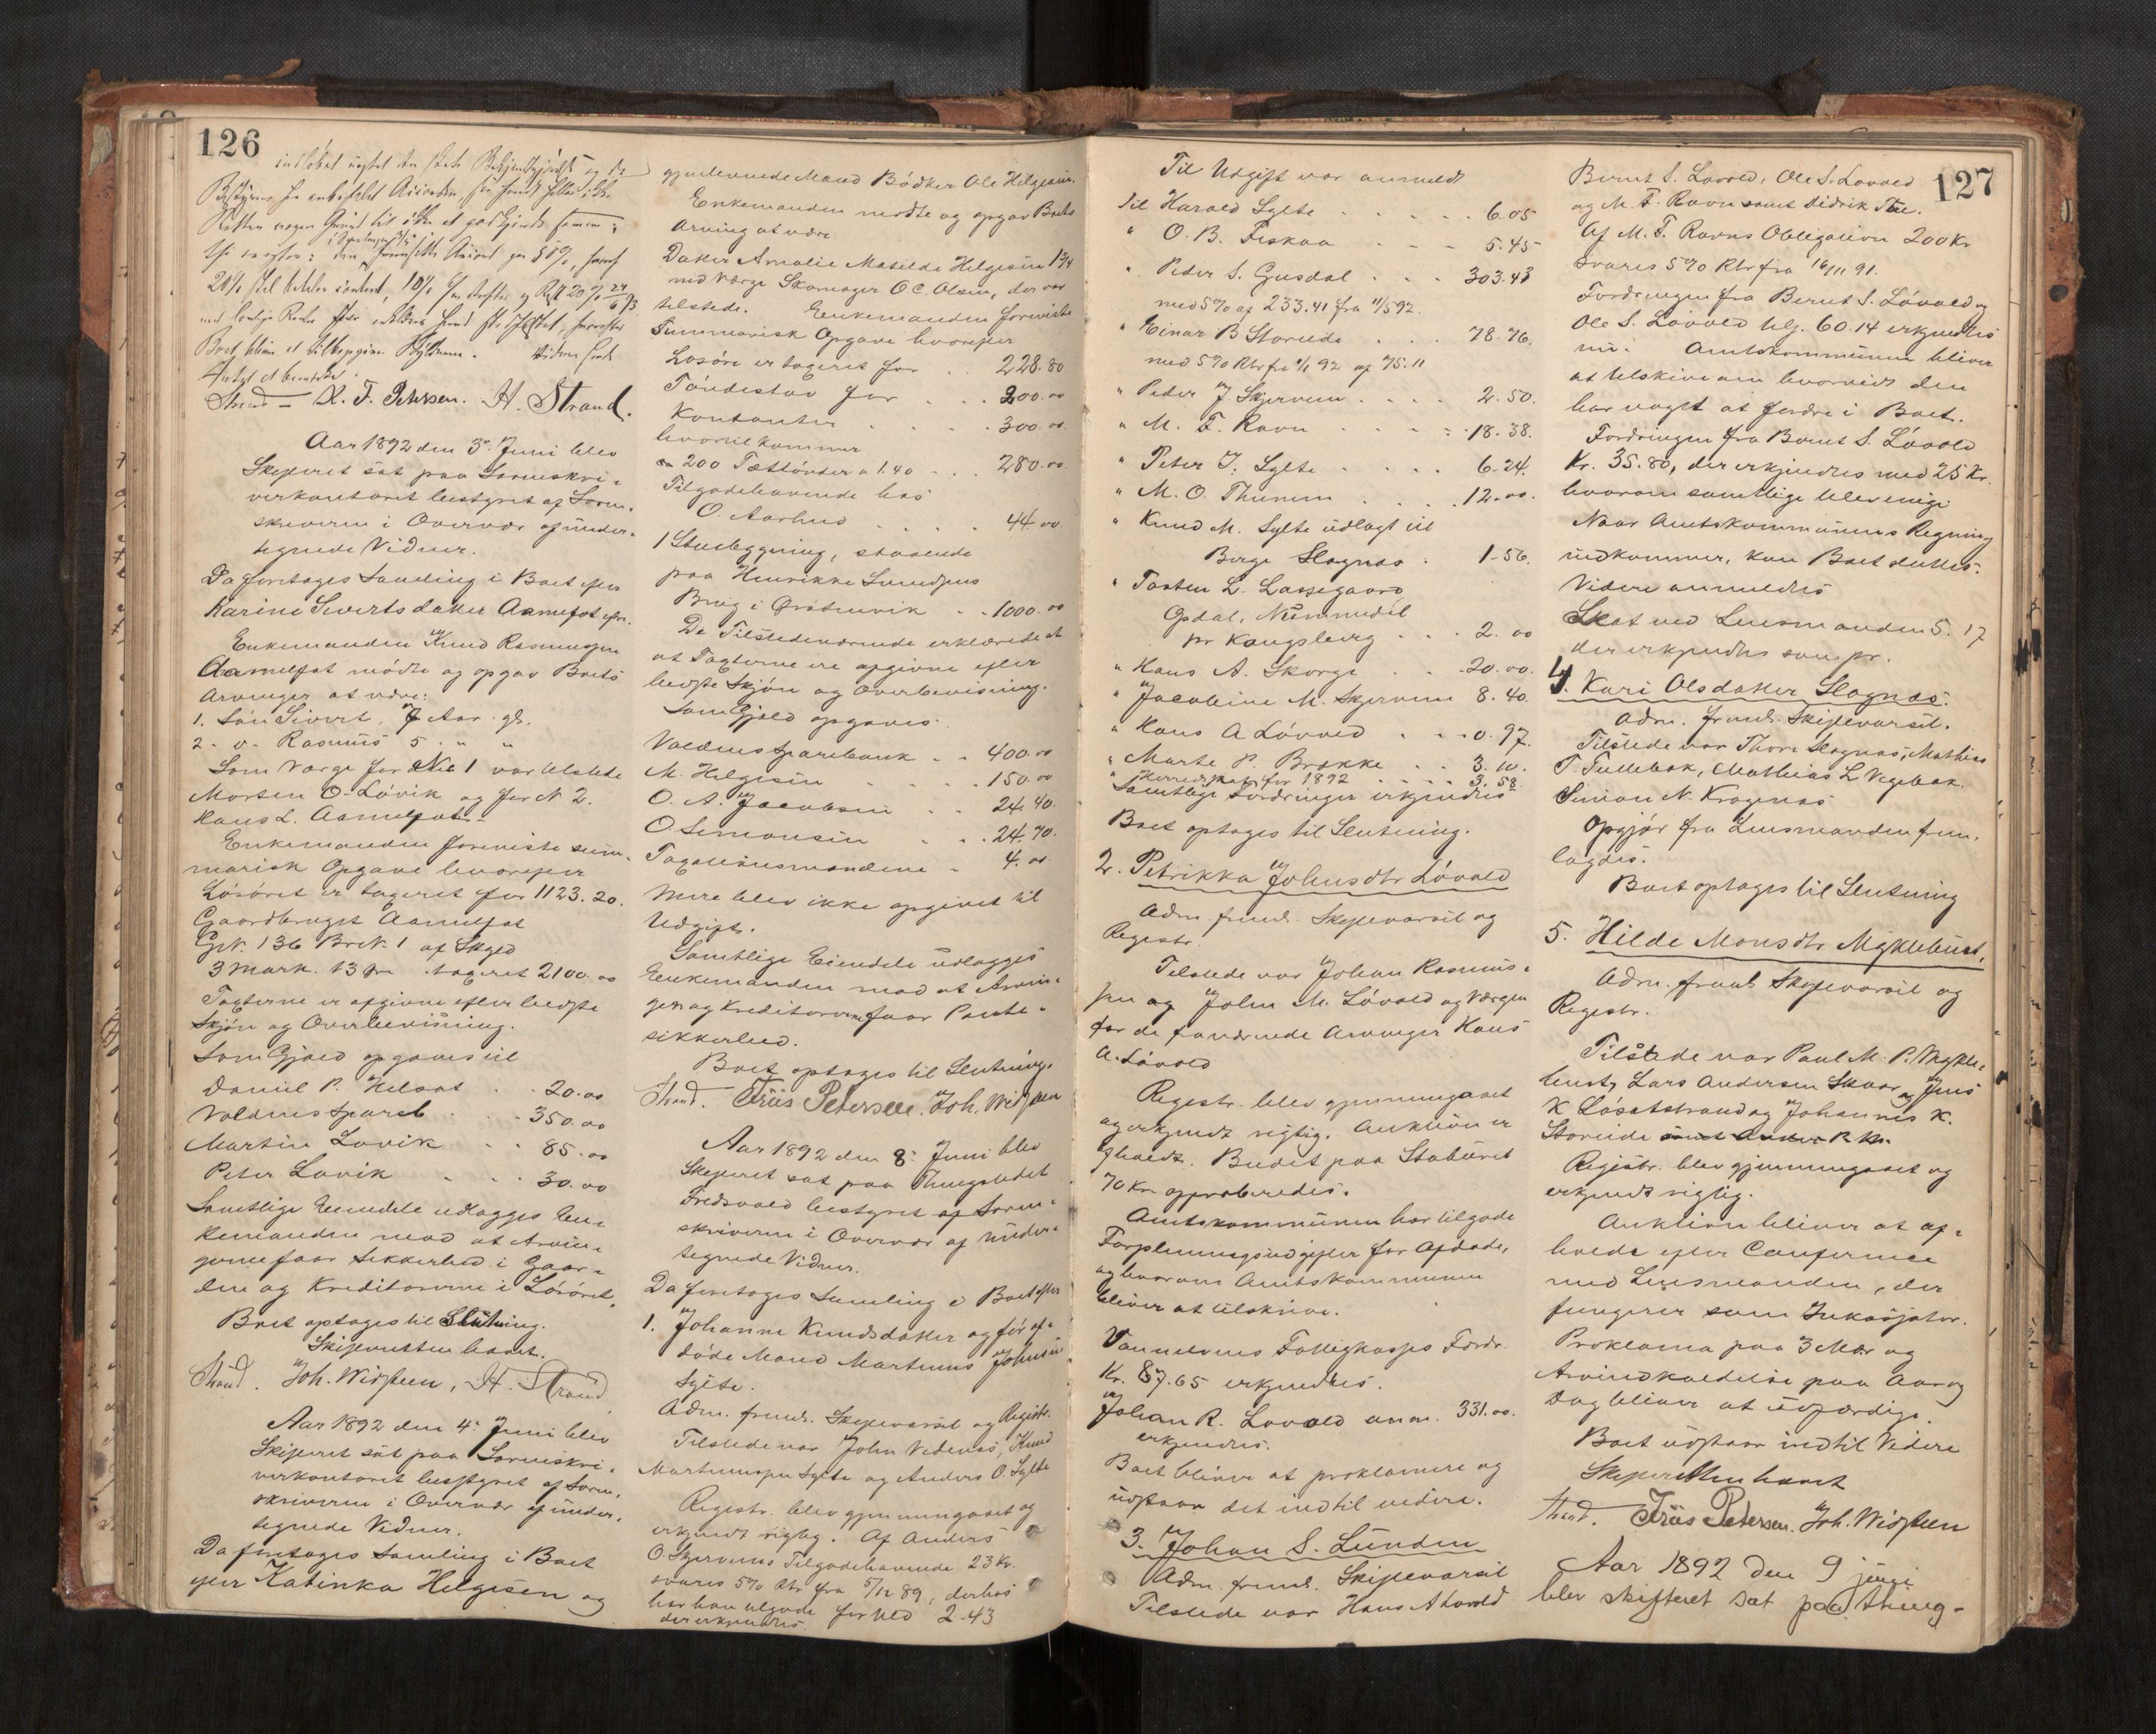 126
indløbet
Grund til
20%
Strand - K. F. Petersen. H. Strand.
Aar 1892 den 3die Juni blev
Skifteret sat paa Sorenskri-
verkontoret bestyret af Soren-
skriveren i Overvær af under-
tegnede Vidner.
Da foretoges Samling i Boet efter
Karine Sivertsdatter Aamelfot
Enkemanden Knud Rasmussen
Aamelfot mødte og opgav Boets
Arvinger at være:
1. Søn Sivert, 7 Aar gl.
2. - v - Rasmus 5 " "
Som Værge for No 1 var tilstede
Morten O. Løvik og for N 2.
Hans L. Aamelfot.
Enkemanden foreviste sum-
marisk Opgave hvorefter
Løsøret er tageret for 1123.20.
Gaardbruget Aamelfot
Gr.N. 136 Br.N. 1 af Skyld
3 Mark 13 Øre tageret 2100.00
Taxterne er afgivne efter bedste
Skjøn og Overbevisning.
Som Gjæld opgaves til
Daniel P. Helset . . 20.00
Voldens Spareb . . 350.00
Martin Lovik . . 85.00
Peter Lovik . . 30.00
Samtlige Eiendele udlægges En-
kemanden mod at Arvin-
gerne faar Sikkerhed i Gaar-
den og Kreditorerne i Løsøret.
Boet optages til Slutning.
Skifteretten hævet.
Strand. Joh. Widsteen, H. Strand
Aar 1892 den 4de Juni blev
Skifteret sat paa Sorenskri-
verkontoret bestyret af Soren-
skriveren i Overvær af under-
tegnede Vidner.
Da foretoges Samling i Boet
efter Katinka Helgesen og
gjenlevende Mand Bødker Ole Helgesen.
Enkemanden mødte og opgav Boets
Arving at være
Datter Amalie Matilde Helgesen
med Værge Skomager O C. Olsen, der var
tilstede. Enkemanden foreviste
Summarisk Opgave hvorefter
Løsøre er tageret for . . 228.80
Tøndestav for . . . 200.00
Kontanter . . . . 300.00
hvortil kommer
200 Tættønder a 1.40 . . 280.00
Tilgodehavende hos
O. Aarhus . . . . 44.00
1 Stuebygning, staaende
paa Henrikke Svendsens
Brug i Ørstenvik . . 1000.00
De Tilstedeværende erklærede at
at Taxterne ere afgivne efter
bedste Skjøn og Overbevisning.
Som Gjæld opgaves.
Voldens Sparebank . . 400.00
M. Helgesen . . . 150.00
O. A. Jacobsen . . 24.40.
O Simonsen . . . 24.70.
Taxationsmændene . 4.00
Mere blev ikke opgivet til
Udgift.
Samtlige Eiendele udlægges
Enkemanden mod at Arvin-
gen og Kreditorerne faar Pante-
sikkerhed.
Boet optages til Slutning.
Strand. Friis Petersen. Joh. Widsteen
Aar 1892 den 8de Juni blev
Skifteret sat paa Thingstedet
Fredsvold bestyret af Soren-
skriveren i Overvær af under-
tegnede Vidner.
Da foretoges Samling i Boet efter
1. Johanne Knudsdatter og før af-
døde Mand Martinus Johnsen
Sylte.
Adm. freml. Skiftevarsel og Registr.
Tilstede var John Videnæs, Knud
Martinussen Sylte og Anders O. Sylte
Registr. blev gjennemgaaet og
erkjendt rigtig. Af Anders
O. Skjervens Tilgodehavende 23 Kr.
svares 5% Rtr fra 5/12 89, derhos
har han tilgode for Ved 2.43
der erkjendtes.
127
Til Udgift var anmeldt
Til Harald Sylte . . . . . 6.05
" O. B. Fiskaa . . . 5.45
" Peder S. Gusdal . . . 303.43
med 5% af 233.41 fra 11/5 92.
" Einar B Storeide . . . 78.76.
med 5% Rtr fra 1/1 92 af 75.11
" Peder J Skjerven . . . . 2.50.
" M. F. Ravn . . . . 18.38.
" Peter J. Sylte . . . . 6.24.
" M. O. Thunem . . . . 12.00.
" Knud M. Sylte udlagt til
Børge Slagnæs . 1.56.
" Torsten L. Lassegaard
Opdal, Nummedal
pr Kongsberg . . . 2.00
" Hans A. Skorge . . . 20.00.
" Jacobine M. Skjerven 8.40.
" Hans A Løvold . . . 0.97.
" Marte P. Brække . . 3.10.
" Herredskat for 1892 . . . . 3.58.
Samtlige Fordringer erkjendtes
Boet optages til Slutning.
2. Petrikka Johnsdtr Løvold
Adm. freml. Skiftevarsel og
Registr.
Tilstede var Johan Rasmus-
sen og John M. Løvold og Værgen
for de fraværende Arvinger Hans
A. Løvold
Registr. blev gjennemgaaet
og erkjendt rigtig. Auktion er
afholdt. Budet paa Stabburet
70 Kr. approberedes.
Amtskommunen har tilgode
Forpleiningsudgifter for Afdøde,
og hvorom Amtskommunen
bliver at tilskrive.
Vannelvens Fattigkasses Fordr.
Kr. 87.65 erkjendtes.
Johan R. Løvold anm. 331.00.
erkjendtes.
Boet bliver at proklamere og
udstaar det indtil videre.
3. Johan S. Lunden
Adm. freml. Skiftevarsel
Tilstede var Hans A Løvold
Bernt S. Løvold, Ole S. Løvold
og M. F. Ravn samt Didrik
Af M. F. Ravns Obligation 200 Kr
svares 5% Rtr fra 16/11 91.
Fordringen fra Bernt S. Løvold og
Ole S. Løvold blg. 60.14 erkjendtes
Amtskommunen bliver
at tilskrive om hvorvidt den
har noget at fordre i Boet.
Fordringen fra Bernt S. Løvold
Kr. 35.80, der erkjendtes med 25 Kr.
hvorom samtlige blev enige
Naar Amtskommunens Regning
indkommer, kan Boet sluttes.
Videre anmeldtes
Skat ved Lensmanden 5.17
der erkjendtes som pr.
4. Kari Olsdatter Slagnæs.
Adm. freml. Skiftevarsel.
Tilstede var Thore Slagnæs, Mathias
T. Tullebak, Mathias L Vegebak
Simon N. Kragenæs
Opgjør fra Lensmanden frem-
lagdes.
Boet optages til Slutning
5. Hilde Monsdtr Myklebust.
Adm. freml Skiftevarsel og
Registr.
Tilstede var Paul M. P. Mykle-
bust, Lars Andersen Skaar og Jens
K Løsetstrand og Johannes K.
Storeide
Registr. blev gjennemgaaet og
erkjendt rigtig.
Auktion bliver at af-
holde efter Conference
med Lensmanden, der
fungerer som Inkassator.
Proklama paa 3 Mdr og
Arvindkaldelse paa Aar og
Dag bliver at udfærdige.
Boet udstaar indtil Videre
Skifteretten hævet
Strand. Friis Petersen. Joh. Widsteen
Aar 1892 den 9 juni
blev skifteret sat paa thing-